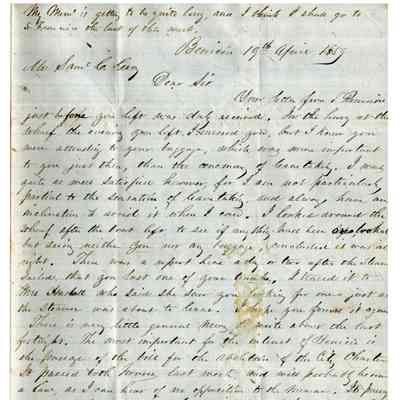 My Mem. is getting to be quite long, and I think I shall go to
S Francisco the last of this week.
Benicia 19th April 1859
Mr Saml C. Gray
Dear Sir
Your letter from S Francisco
just before you left was duly received. In the hurry at the
wharf the evening you left, I missed you, but I knew you
were attending to your baggage, which was more important
to you just then, than the ceremony of leavetaking. I was
quite as well satisfied however, for I am not particularly
partial to the sensation of leavetaking and always have an
inclination to avoid it when I can. I looked around the
wharf after the boat left to see if anything had been overlooked
but seeing neither you nor any baggage, concluded it was all
right. There was a report here a day or two after the steamer
sailed, that you lost one of your trunks. I traced it to
Mrs Hastell who said she saw you looking for one just as
the steamer was about to leave. I hope you found it again
There is very little general news to write about the last
fortnight. The most important for the interest of Benicia is
the passage of the bill for the abolition of the City Charter
It passed both houses last week and will probably become
a law, as I can hear of no opposition to the measure.